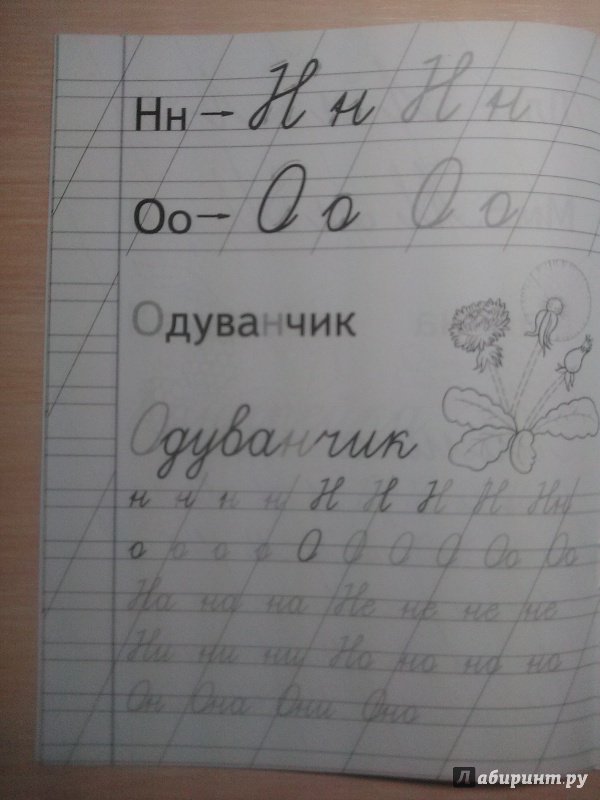 Нн → Н н Н н
Оо → О о О о
Одуванчик
Одуванчик
н н н н Н Н Н Н Нн
о о о о О О О О Оо Оо
На на на Не не не не
Ни ни ни Но но но но
Он Она Они Оно
Лабиринт.ру